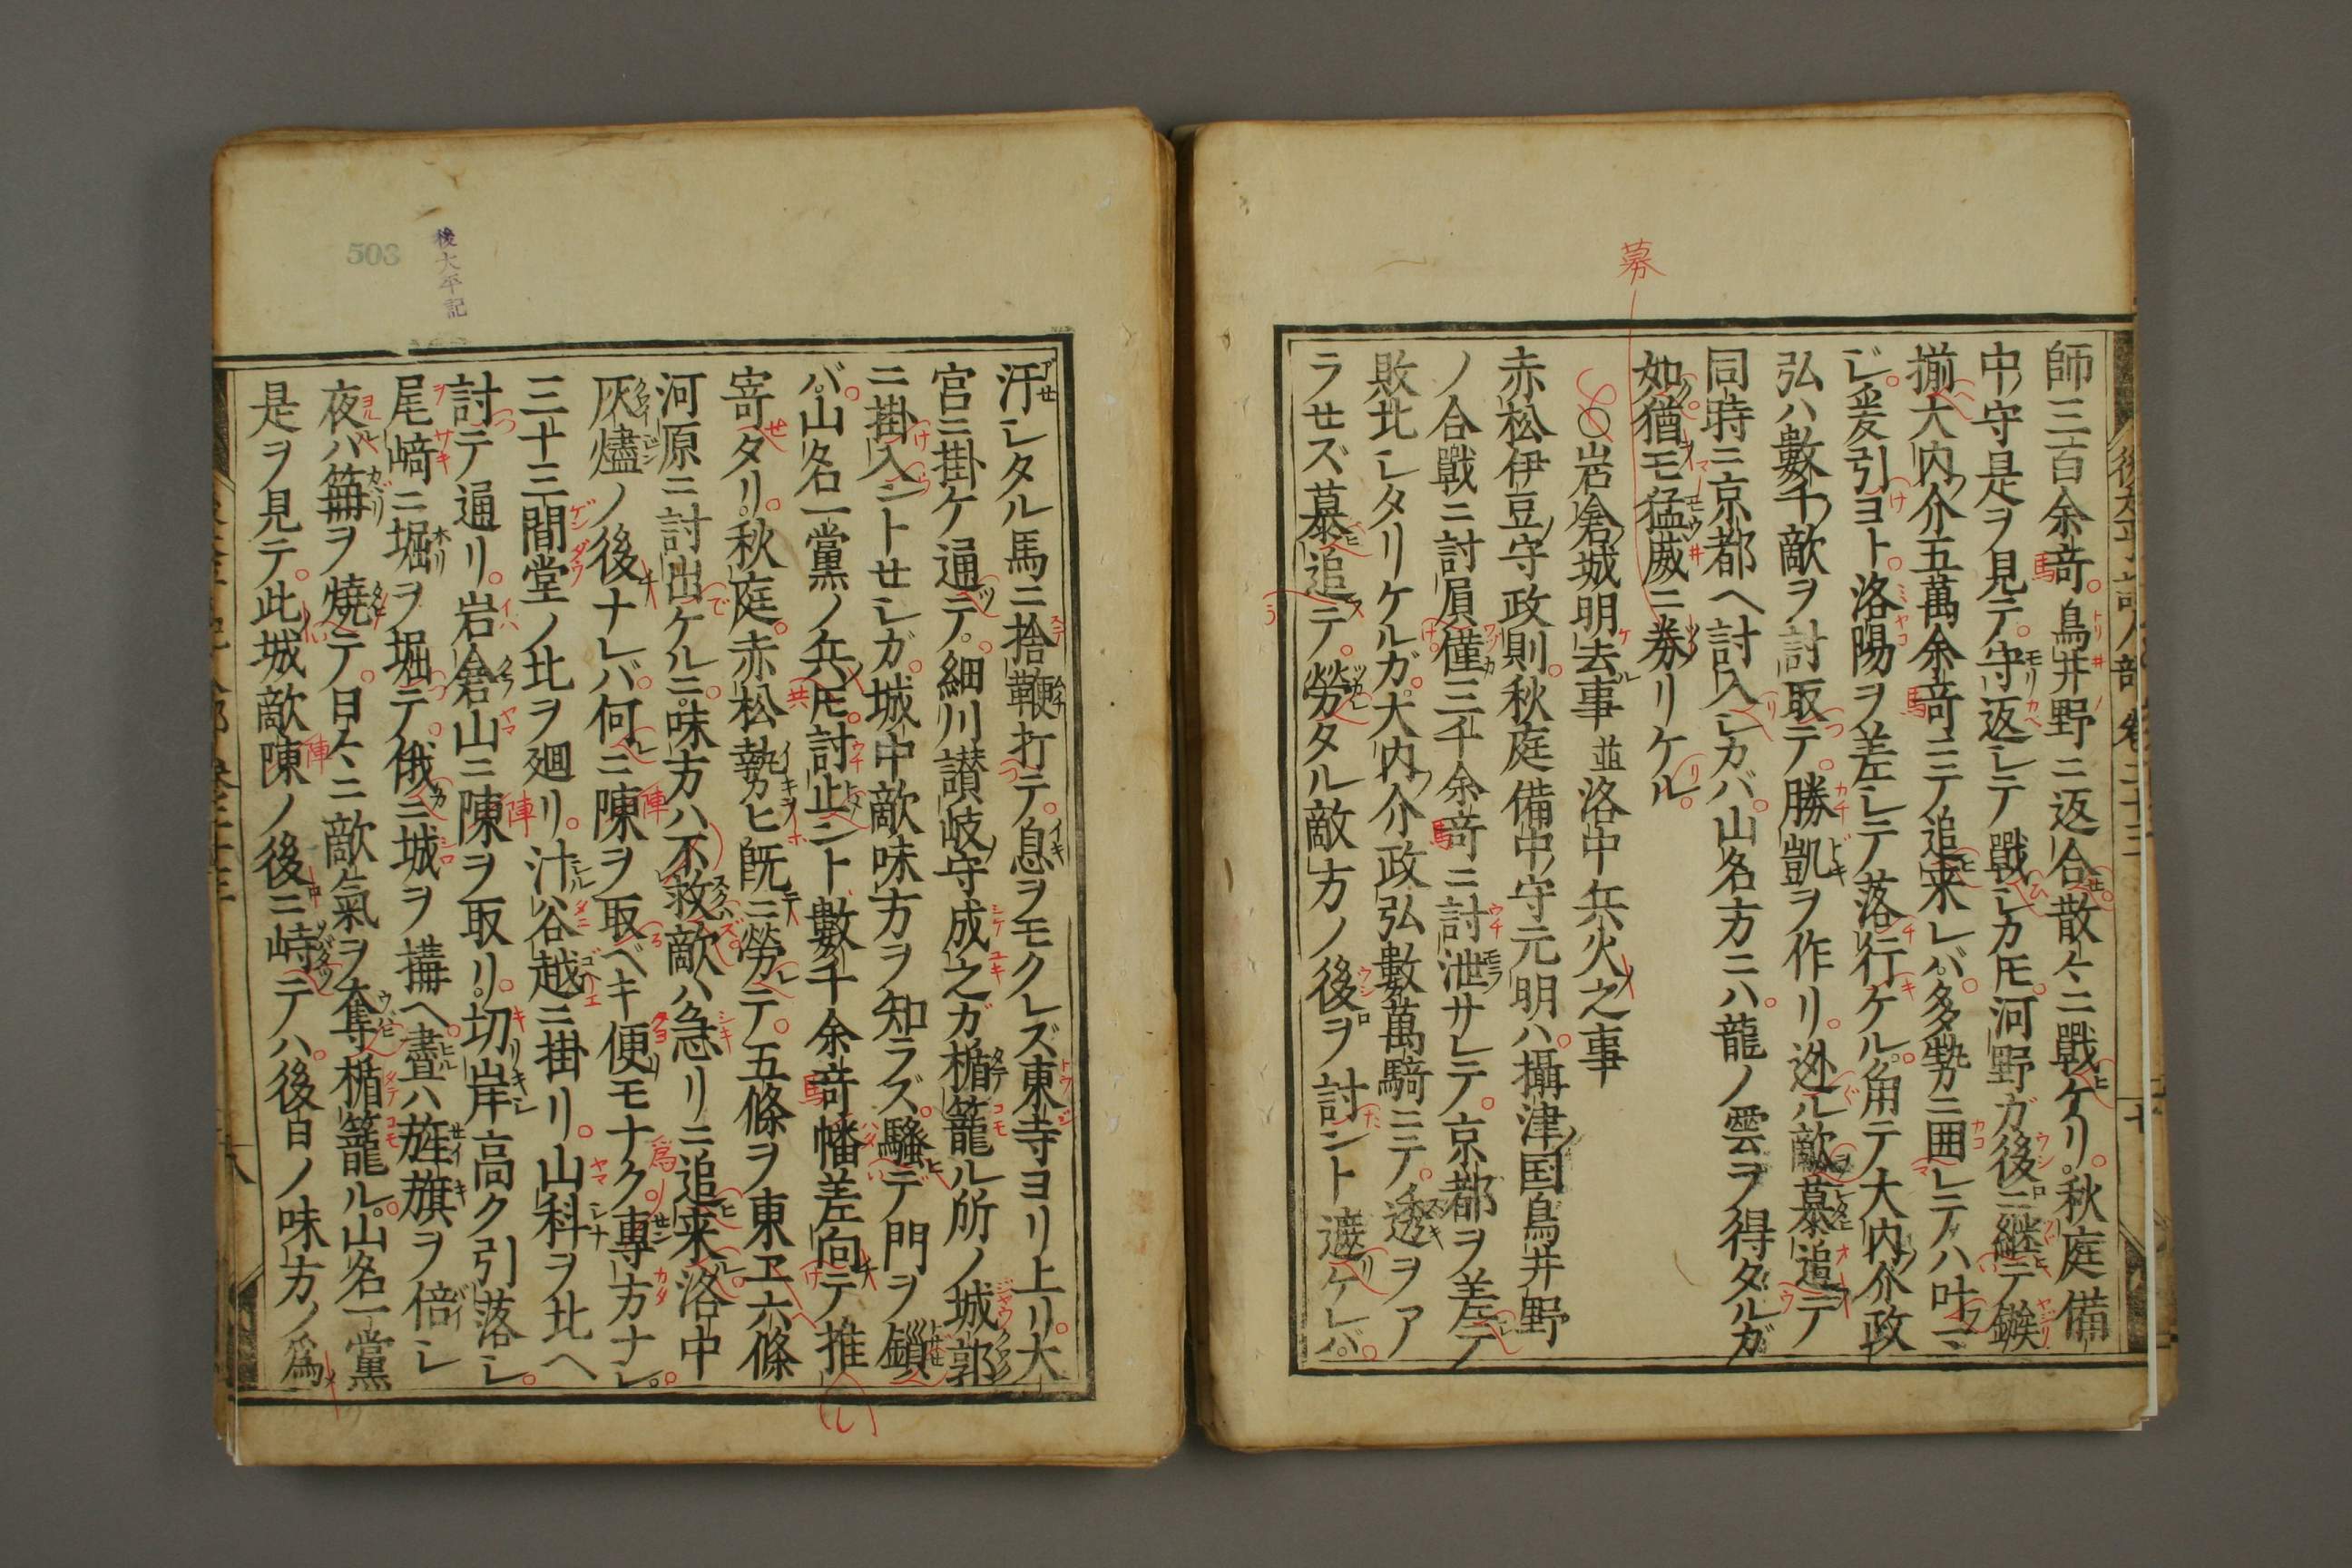 師三百余𬛸鳥井野ニ返合散々ニ戰ケリ秋庭備
中守是ヲ見テ守返シテ戰シカ𪜈河野ガ後ニ継テ鏃
揃大内介五萬余𬛸ニテ追来レバ多勢ニ囲レテハ叶マ
ジ爰引ヨト洛陽ヲ差シテ落行ケル角テ大内介政
弘ハ數千敵ヲ討取テ勝凱ヲ作リ迯ル敵慕追テ
同時ニ京都ヘ討入シカバ山名方ニハ龍ノ雲ヲ得タルガ
如猶モ猛威ニ券リケル
○岩倉城明去事並洛中兵火之事
赤松伊豆守政則秋庭備中守元明ハ攝津国鳥井野
ノ合戰ニ討屓僅三千余𬛸ニ討泄サレテ京都ヲ差テ
敗北シタリケルガ大内介政弘數萬騎ニテ透ヲア
ラセズ慕追テ勞タル敵方ノ後ヲ討ント遮ケレバ
汗シタル馬ニ捨鞭打テ息ヲモクレズ東寺ヨリ上リ大
宮ニ掛ケ通テ細川讃岐守成之ガ楯籠ル所ノ城郭
ニ掛入ントセシガ城中敵味方ヲ知ラズ騒デ門ヲ鎖
バ山名一黨ノ兵𪜈討止ント數千余𬛸幡差向テ推
寄タリ秋庭赤松勢ヒ既ニ勞テ五條ヲ東ヱ六條
河原ニ討出ケルニ味方ハ不救敵ハ急リニ追来洛中
灰燼ノ後ナレバ何ニ陳ヲ取ベキ便モナク專方ナシ
三十三間堂ノ北ヲ廻リ汁谷越ニ掛リ山科ヲ北ヘ
討テ通リ岩倉山ニ陳ヲ取リ切岸高ク引落シ
尾﨑ニ堀ヲ堀テ俄ニ城ヲ搆ヘ晝ハ旌旗ヲ倍シ
夜バ篝ヲ燒テ日々ニ敵氣ヲ奪楯籠ル山名一黨
是ヲ見テ此城敵陳ノ後ニ峙テハ後日ノ味方ノ爲
後太平記
503
募